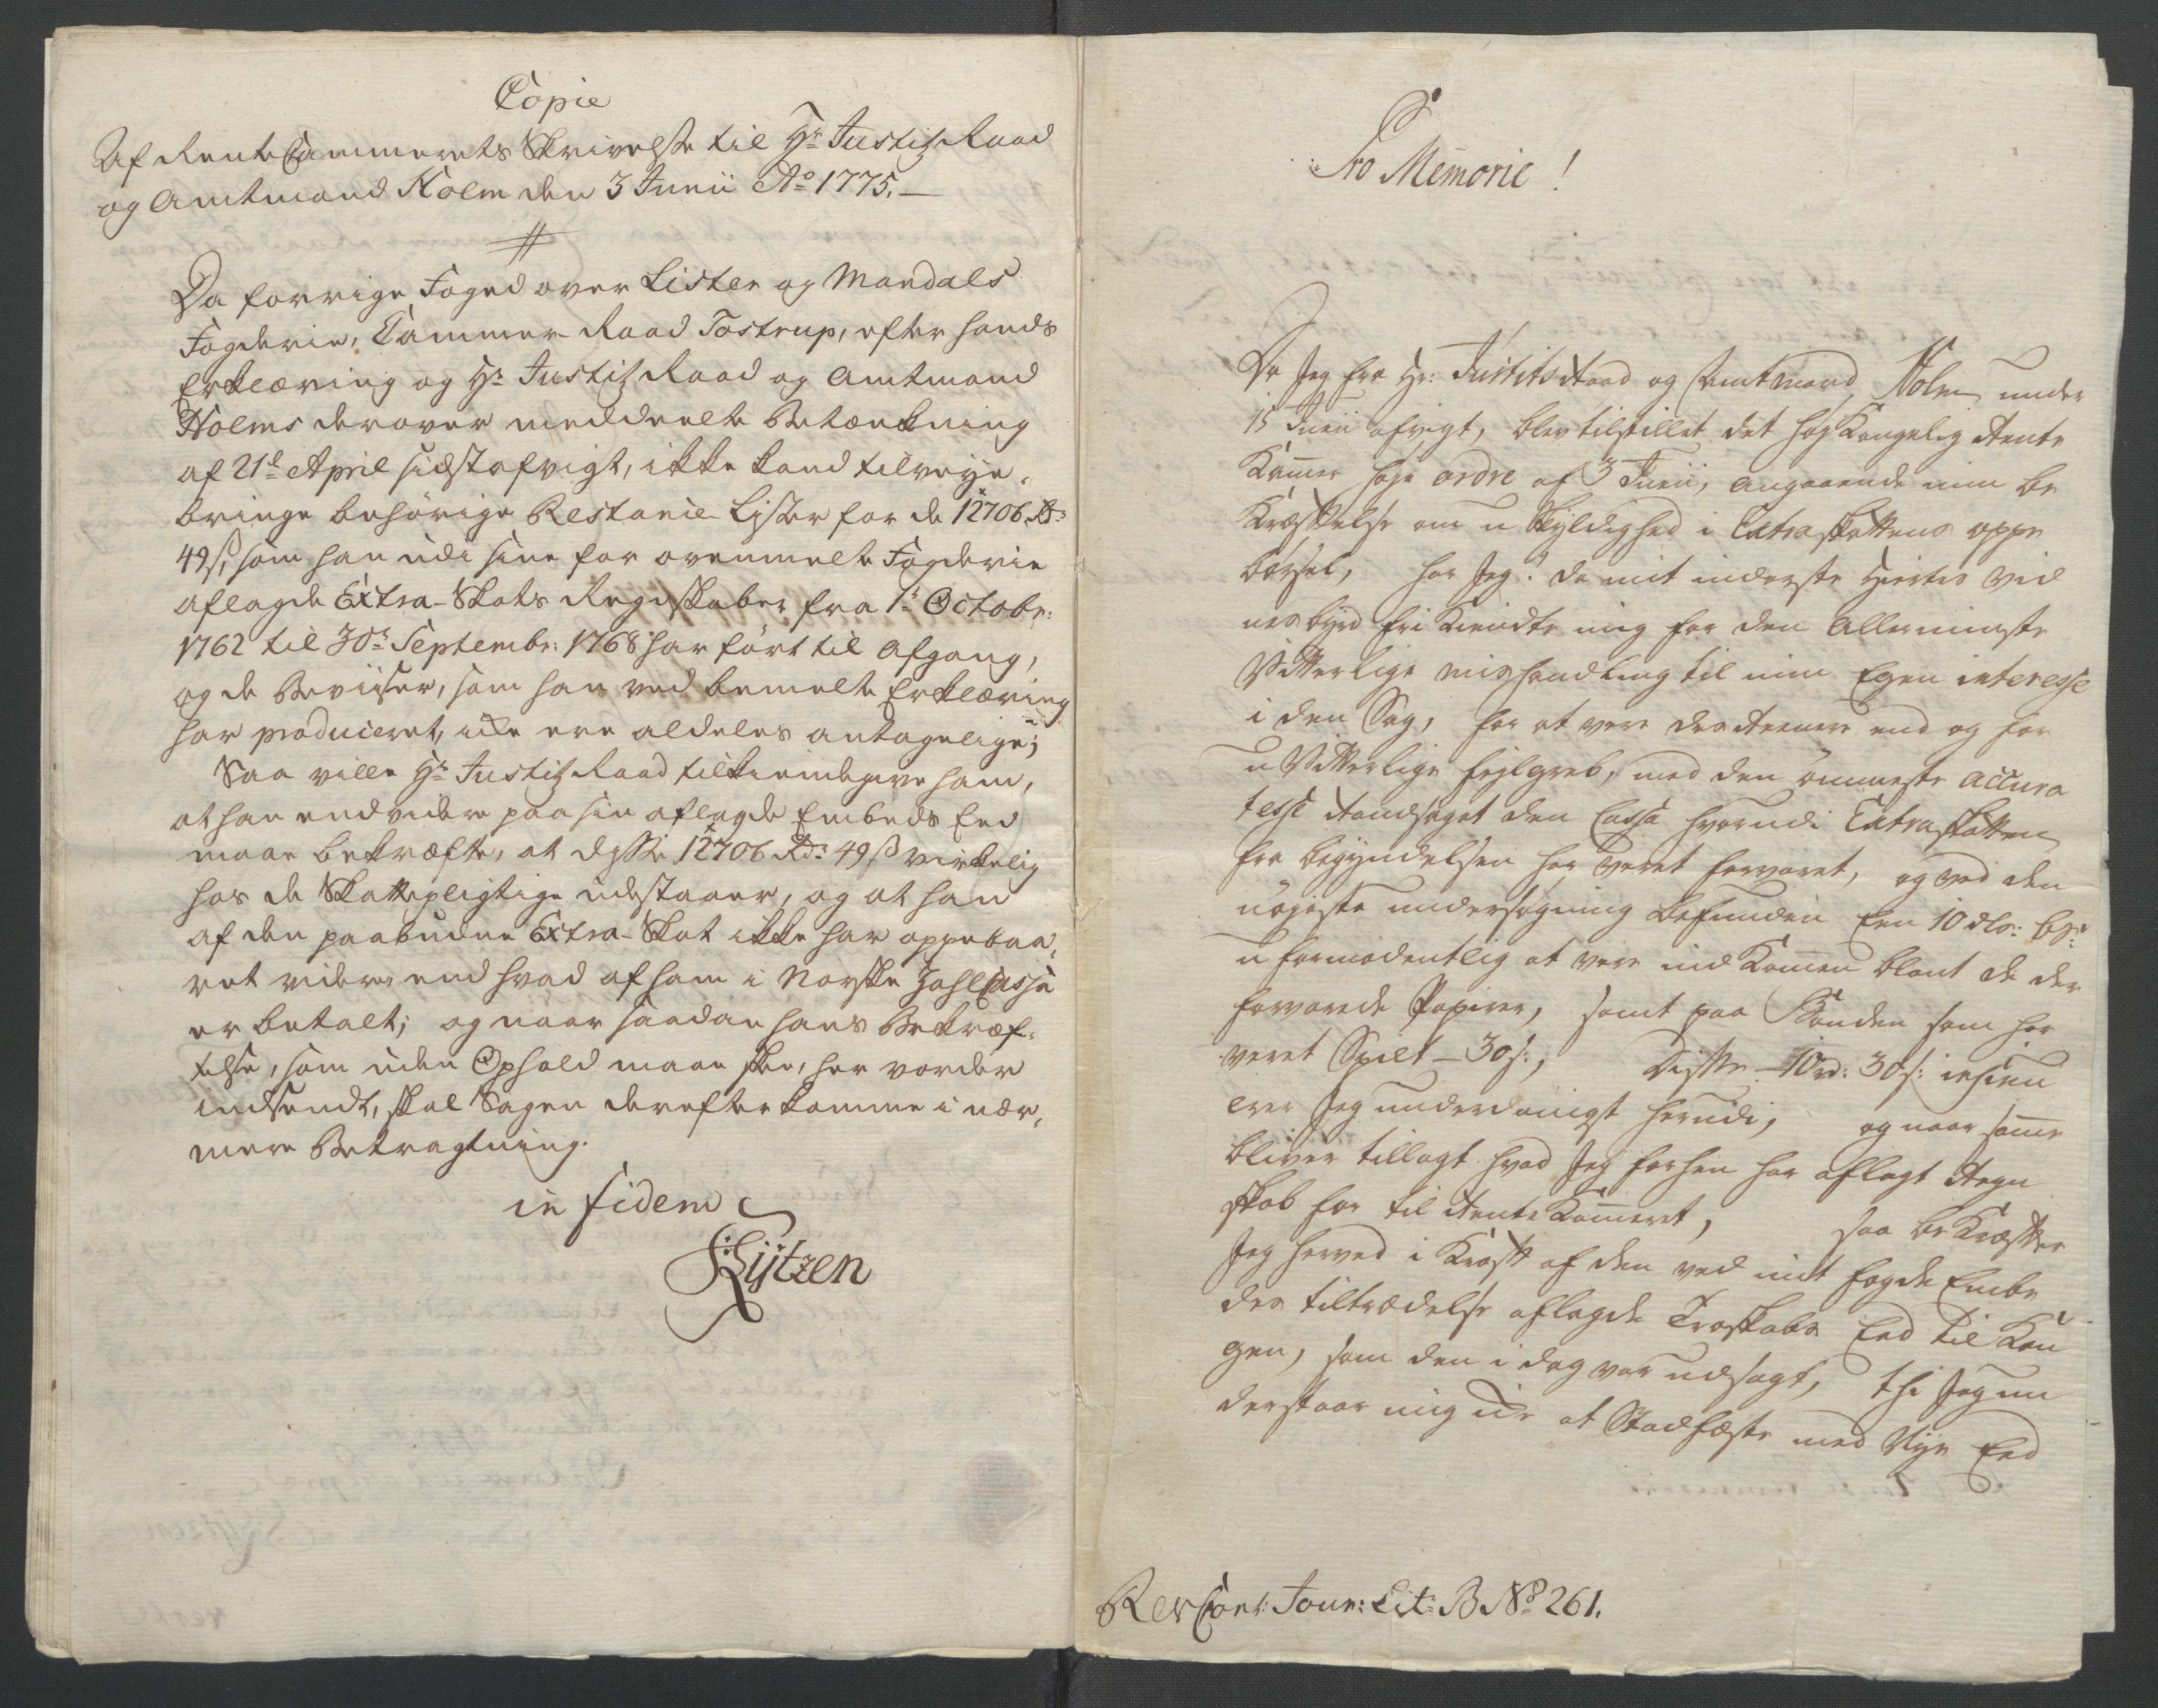 Copie
Af RenteCammerets Skrivelse til Hr Justitz Raad
og Amtmand Holm den 3 Junii Ao 1775.
Da forrige Foged over Lister og Mandals
Fogderie, Cammer-Raad Tostrup, efter hands
Erklæring og Hr Justitz Raad og Amtmand
Holms derover meddeelte Betænkning
af 21de April sidstafvigt, ikke kand tilveye-
bringe behörige Restanie-Lister for de 12706 Rd:
49 s, som han udi sine for ovenmelte Fogderie
aflagde Extra-Skats Regnskaber fra 1te Octobr:
1762 til 30te Septembr: 1768 har fört til Afgang,
og de Beviiser, som han ved bemelte Erklæring
har produceret, icke ere aldeles antagelige;
Saa ville Hr Justitz Raad tilkiendegive ham,
at han endvidere paa sin aflagde Embeds Eed
maae bekræfte, at disse 12706 Rdr 49 ß virkelig
hos de Skattepligtige udstaaer, og at han
af den paabudne Extra-Skat ikke har oppebaa-
ret videre end hvad af ham i Norske ZahlCassa
er betalt; og naar saadan hans Bekræf-
telse, som uden Ophold maae skee, her vorder
indsendt, skal Sagen derefter komme i nær-
mere Betragtning.
in fidem
Kÿtzen
Pro Memorie!
Da Jeg fra Hr: JustitsRaad og Amtmand Holm under
15 Junii afvigt, blev tilstillet det høj Kongelig Rente
Kam̄er høje ordre af 3 Junii, angaaende min be
Kræftelse om u Skyldighed i Extraskattens oppe
børsel, har Jeg: da mit inderste Hiertes Vid
nesbyrd fri Kiendte mig for den Allerminste
Vitterlige mishandling til min Egen interesse
i den Sag, for at vere des Reenere end og for
u Vitterlige fejlgreb, med den ömmeste accura
tesse Randsaget den Cassa hvorudi Extraskatten
fra begyndelsen har veret forvaret, og ved den
nøjeste undersøgning befunden Een 10 dlr:
u formodentlig at vere ind Kom̄en blant de der
forvarede Papirer, samt paa Bunden som har
veret Spilt - 30 s:, Disse - 10 rd: 30 s: insinu
erer Jeg underdanigst herudi, og naar sam̄e
bliver tillagt hvad Jeg forhen har aflagt Regn
skab for til Rente Kam̄eret, saa be Kræfter
Jeg herved i Kraft af den ved mit fogde Embe
des tiltrædelse aflagde Troskabs Eed til Kon
gen, som den i dag var udsagt, thi Jeg un
derstaar mig ei at Stadfæste med Nye Eed
Rev Cont: Jour: Lit: B No 261.